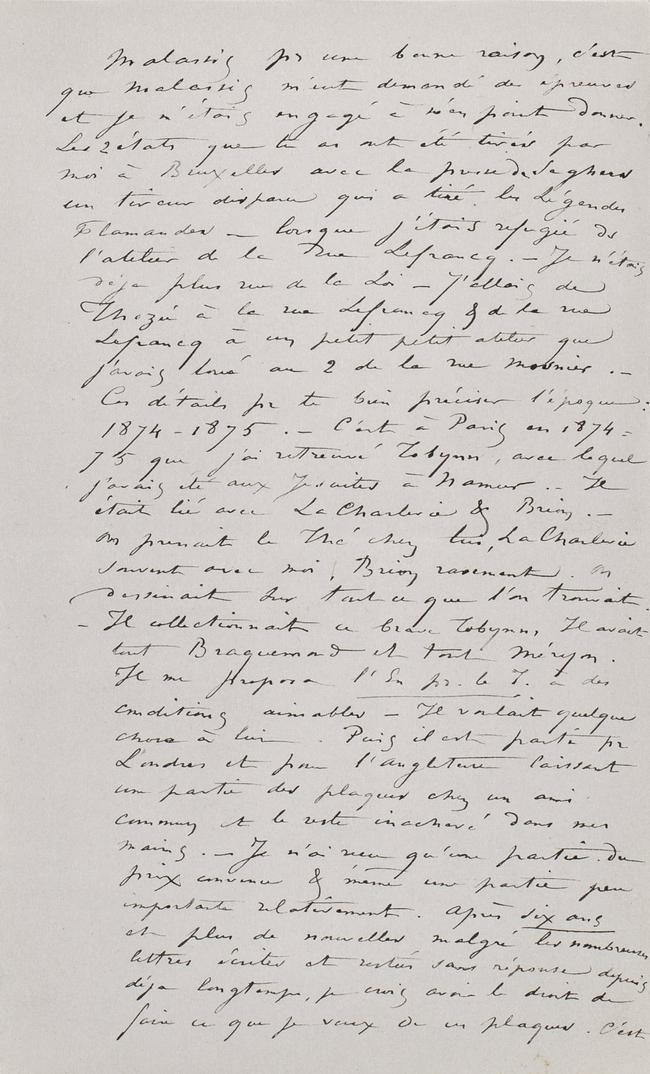 Malassis pr une bonne raison, c'est
que Malassis m'eut demandé des épreuves
et je m'étais engagé à n'en point donner.
Les 2 états que tu as ont été tirés par
moi à Bruxelles avec la presse de Seghers
un tireur disparu qui a tiré les Légendes
Flamandes — lorsque j'étais refugié ds
l'atelier de la rue Lefrancq. — Je n'étais
déja plus rue de la Loi — J'allais de
Thozée à la rue Lefrancq & de la rue
Lefrancq à un petit petit atelier que
j'avais loué au 2 de la rue Mosnier. —
Ces détails pr te bien préciser l'époque:
1874-1875. — C'est à Paris en 1874=
75 que j'ai retrouvé Tobynn, avec lequel
j'avais été aux Jesuites à Namur. — Il
était lié avec La Charlerie & Brion. —
On prenait le Thé chez lui, La Charlerie
souvent avec moi, Brion rarement. On
dessinait sur tout ce que l'on trouvait.
— Il collectionnait ce brave Tobynn, Il avait
tout Bracquemond et tout Méryon.
Il me proposa l'En pr. le T. à des
conditions aimables — Il voulait quelque
chose à lui. Puis il est parti pr
Londres et pour l'angleterre laissant
une partie des plaques chez un ami
commun et le reste inachevé dans mes
mains. — Je n'ai reçu qu'une partie du
prix convenu & même une partie peu
importante relativement. Après six ans
et plus de nouvelles malgré les nombreuses
lettres écrites et restées sans réponse depuis
déja longtemps, je crois avoir le droit de
faire ce que je veux de ces plaques. C'est